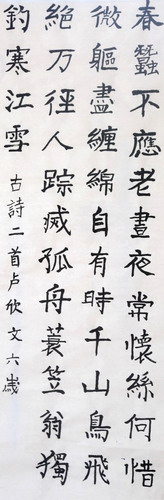 春蠶不應老晝夜常懷絲何惜
微軀盡纏綿自有時千山鳥飛
絕万徑人踪烕孤舟蓑笠翁獨
釣寒江雪
古詩二首卢欣文六歲